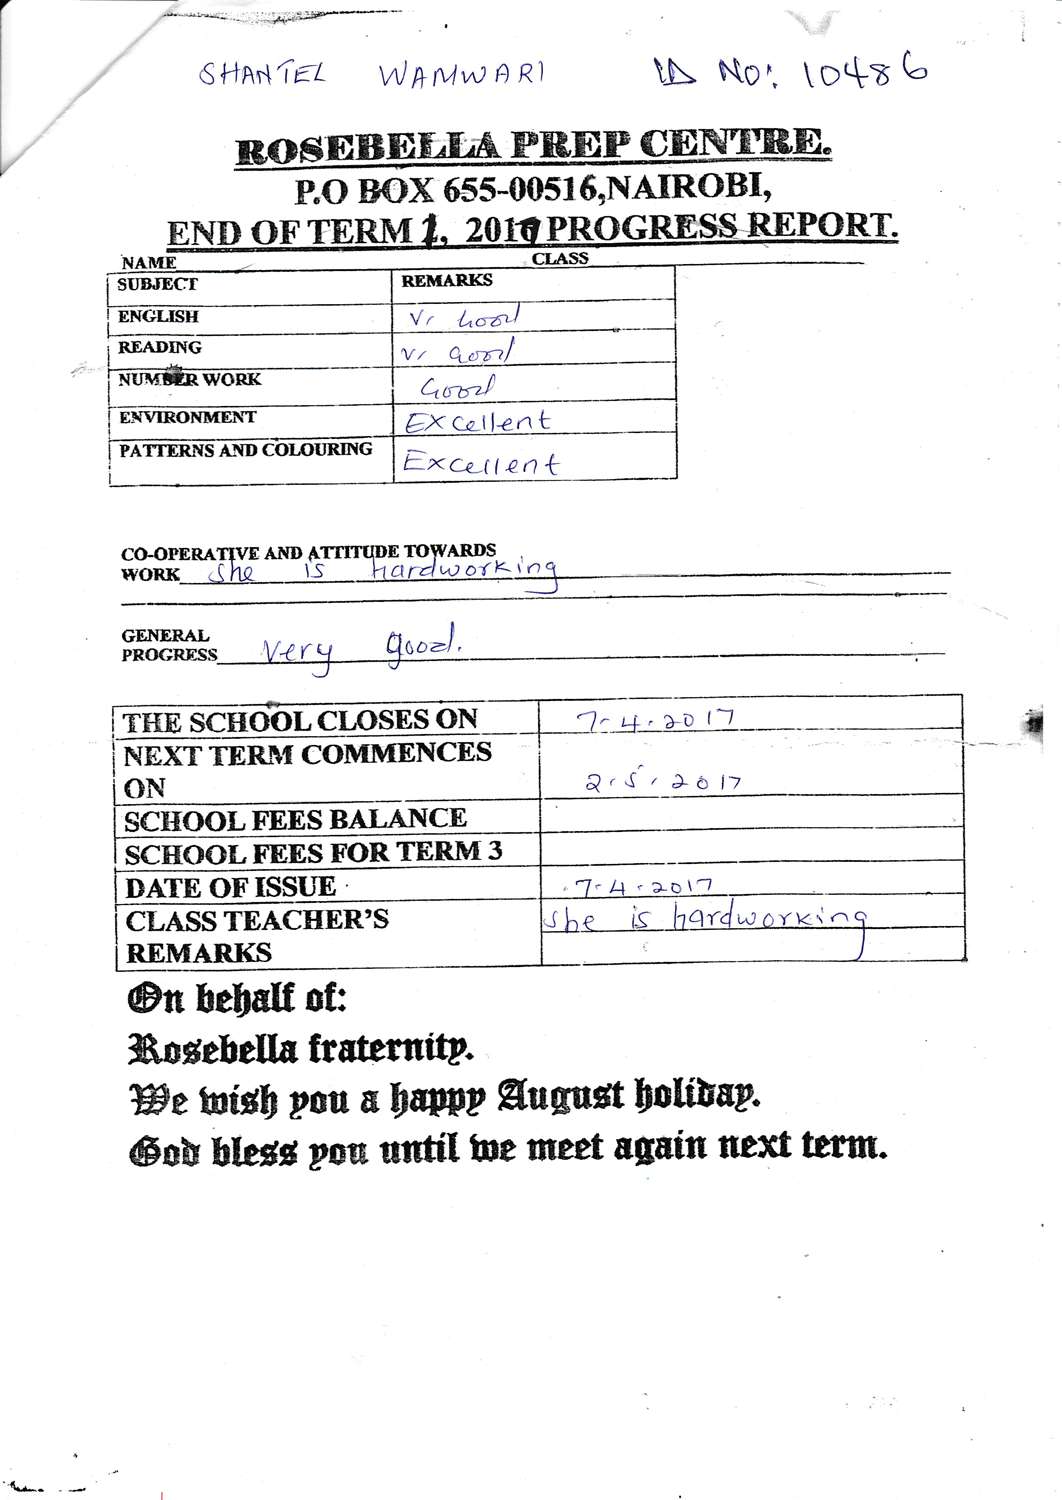 SHANTEL WAMWARI ID NO: 10486
ROSEBELLA PREP CENTRE.
P.O BOX 655-00516,NAIROBI,
END OF TERM 1, 2017 PROGRESS REPORT.
NAME CLASS
SUBJECT REMARKS
ENGLISH V. Good
READING V. Good
NUMBER WORK Good
ENVIRONMENT Excellent
PATTERNS AND COLOURING Excellent
CO-OPERATIVE AND ATTITUDE TOWARDS
WORK She is hardworking
GENERAL
PROGRESS Very good.
THE SCHOOL CLOSES ON 7-4-2017
NEXT TERM COMMENCES
ON 2.5.2017
SCHOOL FEES BALANCE
SCHOOL FEES FOR TERM 3
DATE OF ISSUE 7-4-2017
CLASS TEACHER'S She is hardworking
REMARKS
On behalf of:
Rosebella fraternity.
We wish you a happy August holiday.
God bless you until we meet again next term.